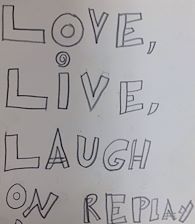 LOVE,
LiVE,
LAUGH
ON REPLAY